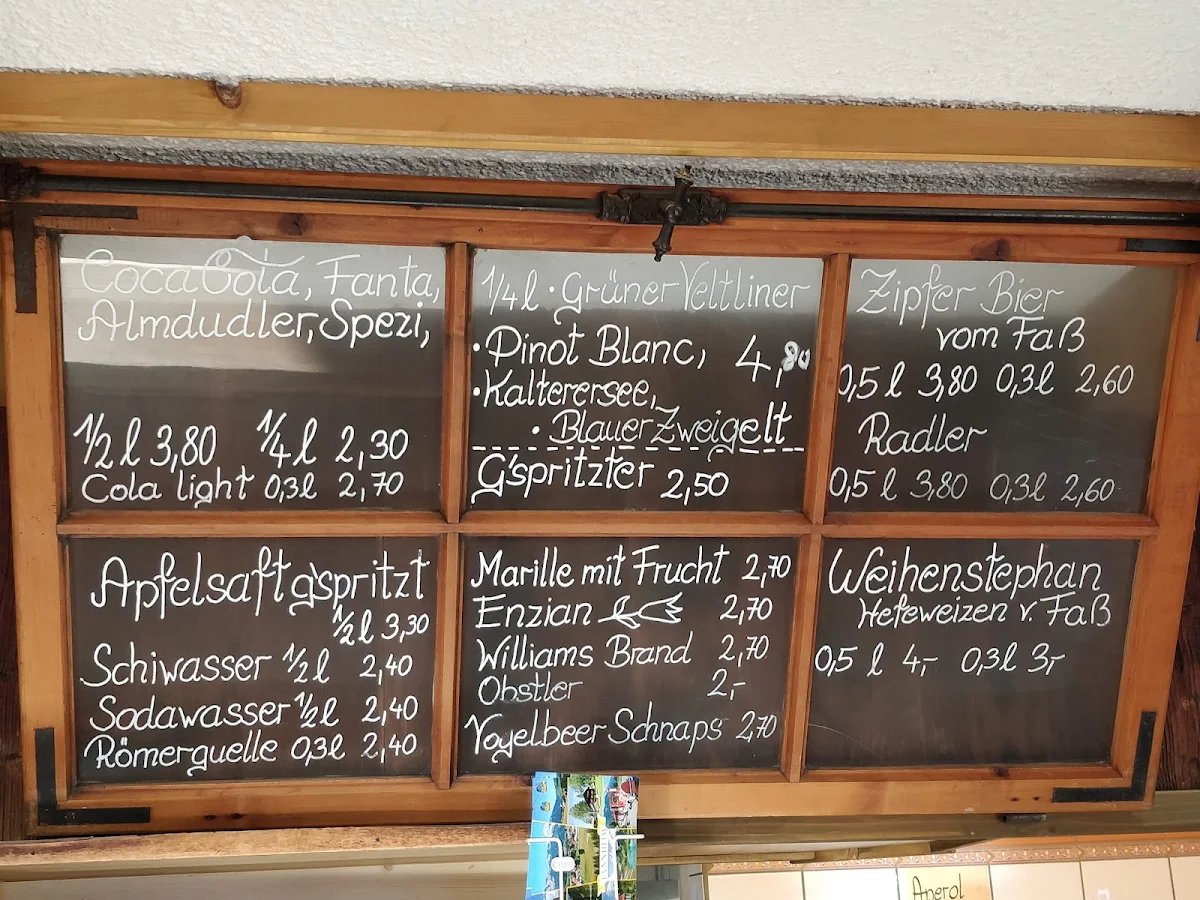 Coca Cola, Fanta,
Almdudler, Spezi,
1/2 l 3,80 1/4 l 2,30
Cola light 0,3l 2,70
1/4 l · Grüner Veltliner
· Pinot Blanc, 4,80
· Kalterersee,
· Blauer Zweigelt
G'spritzter 2,50
Zipfer Bier
vom Faß
0,5 l 3,80 0,3l 2,60
Radler
0,5 l 3,80 0,3l 2,60
Apfelsaft g'spritzt
1/2 l 3,30
Schiwasser 1/2 l 2,40
Sodawasser 1/2 l 2,40
Römerquelle 0,3l 2,40
Marille mit Frucht 2,70
Enzian 2,70
Williams Brand 2,70
Obstler 2,-
Vogelbeer Schnaps 2,70
Weihenstephan
Hefeweizen v. Faß
0,5 l 4,- 0,3l 3,-
Aperol